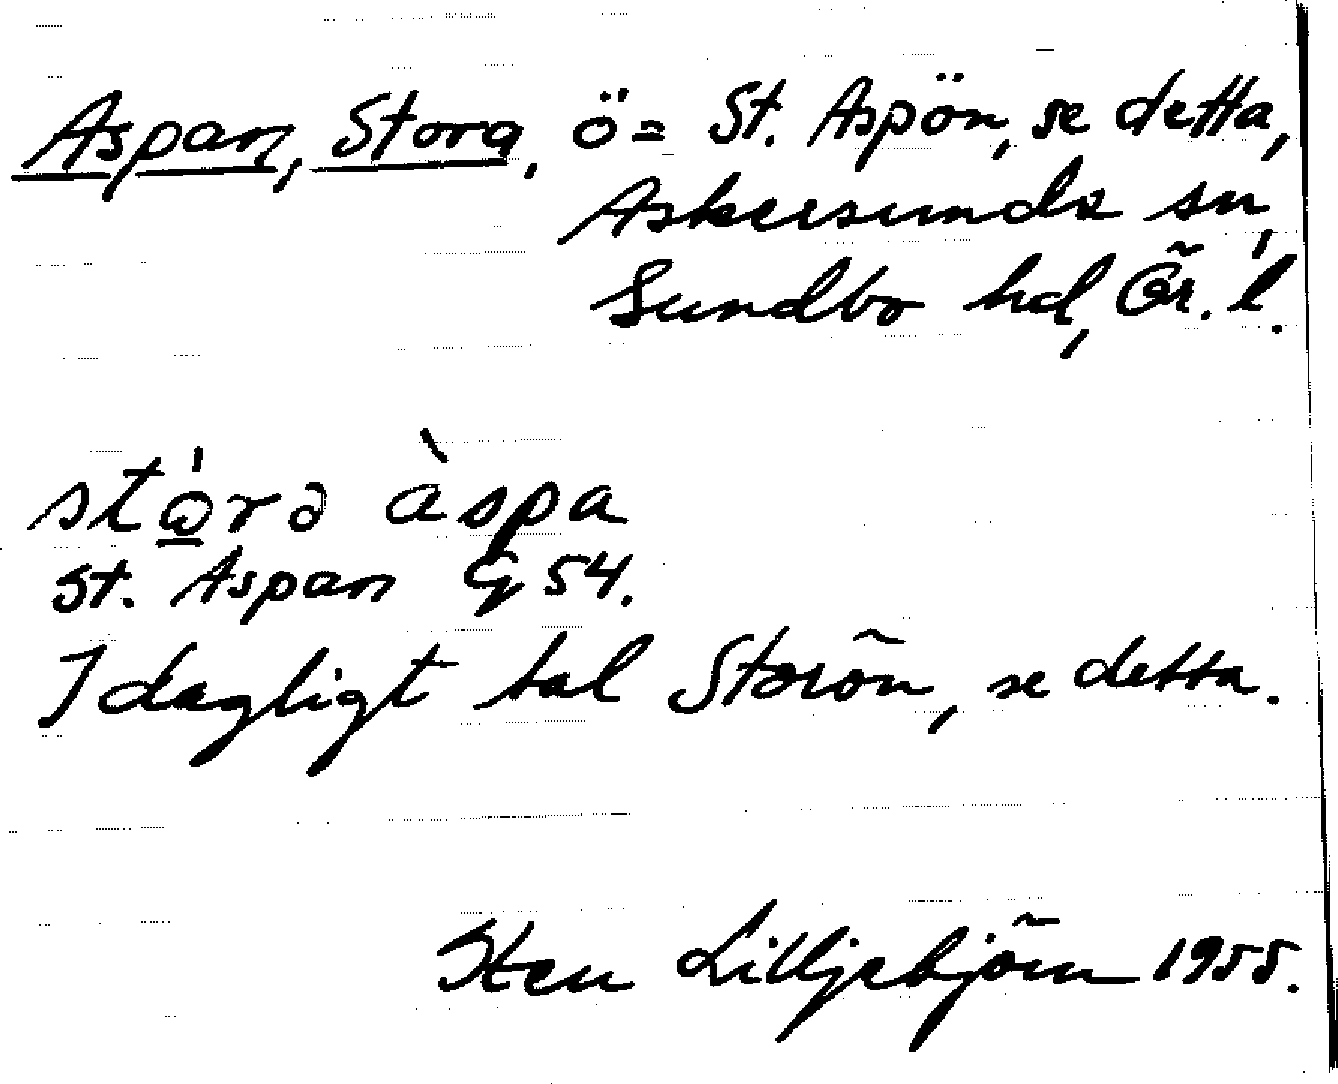 Aspan, Stora, ö = St. Aspön, se detta,
Askersunds sn,
Sundbo hd, Ör. l.
stώ̲rə àspa
St. Aspan G 54.
I dagligt tal Storön, se detta.
Sten Lilljebjörn 1955.